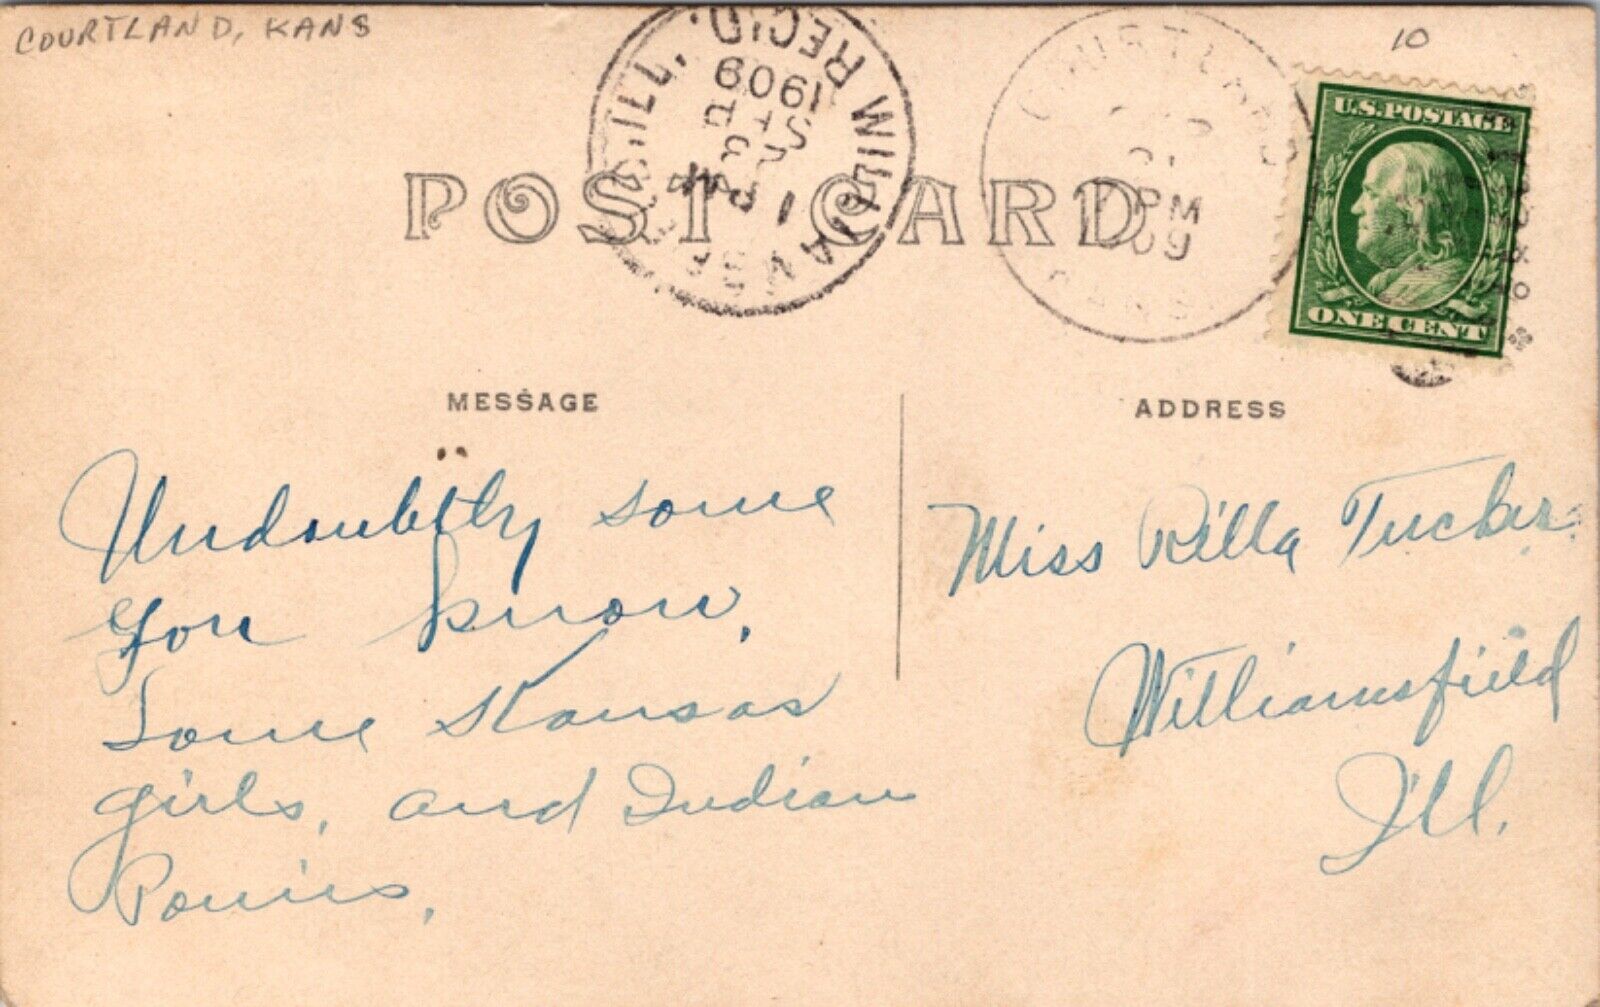 COURTLAND, KANS
10
WILLIAMSFIELD, ILL.
REC'D.
1909
1 PM
COURTLAND
PM
09
KANS
U.S. POSTAGE
ONE CENT
POST CARD
MESSAGE
Undoubtly some
you know,
Some Kansas
girls, and Indian
Ponies,
ADDRESS
Miss Rilla Tucker
Williamsfield
Ill.